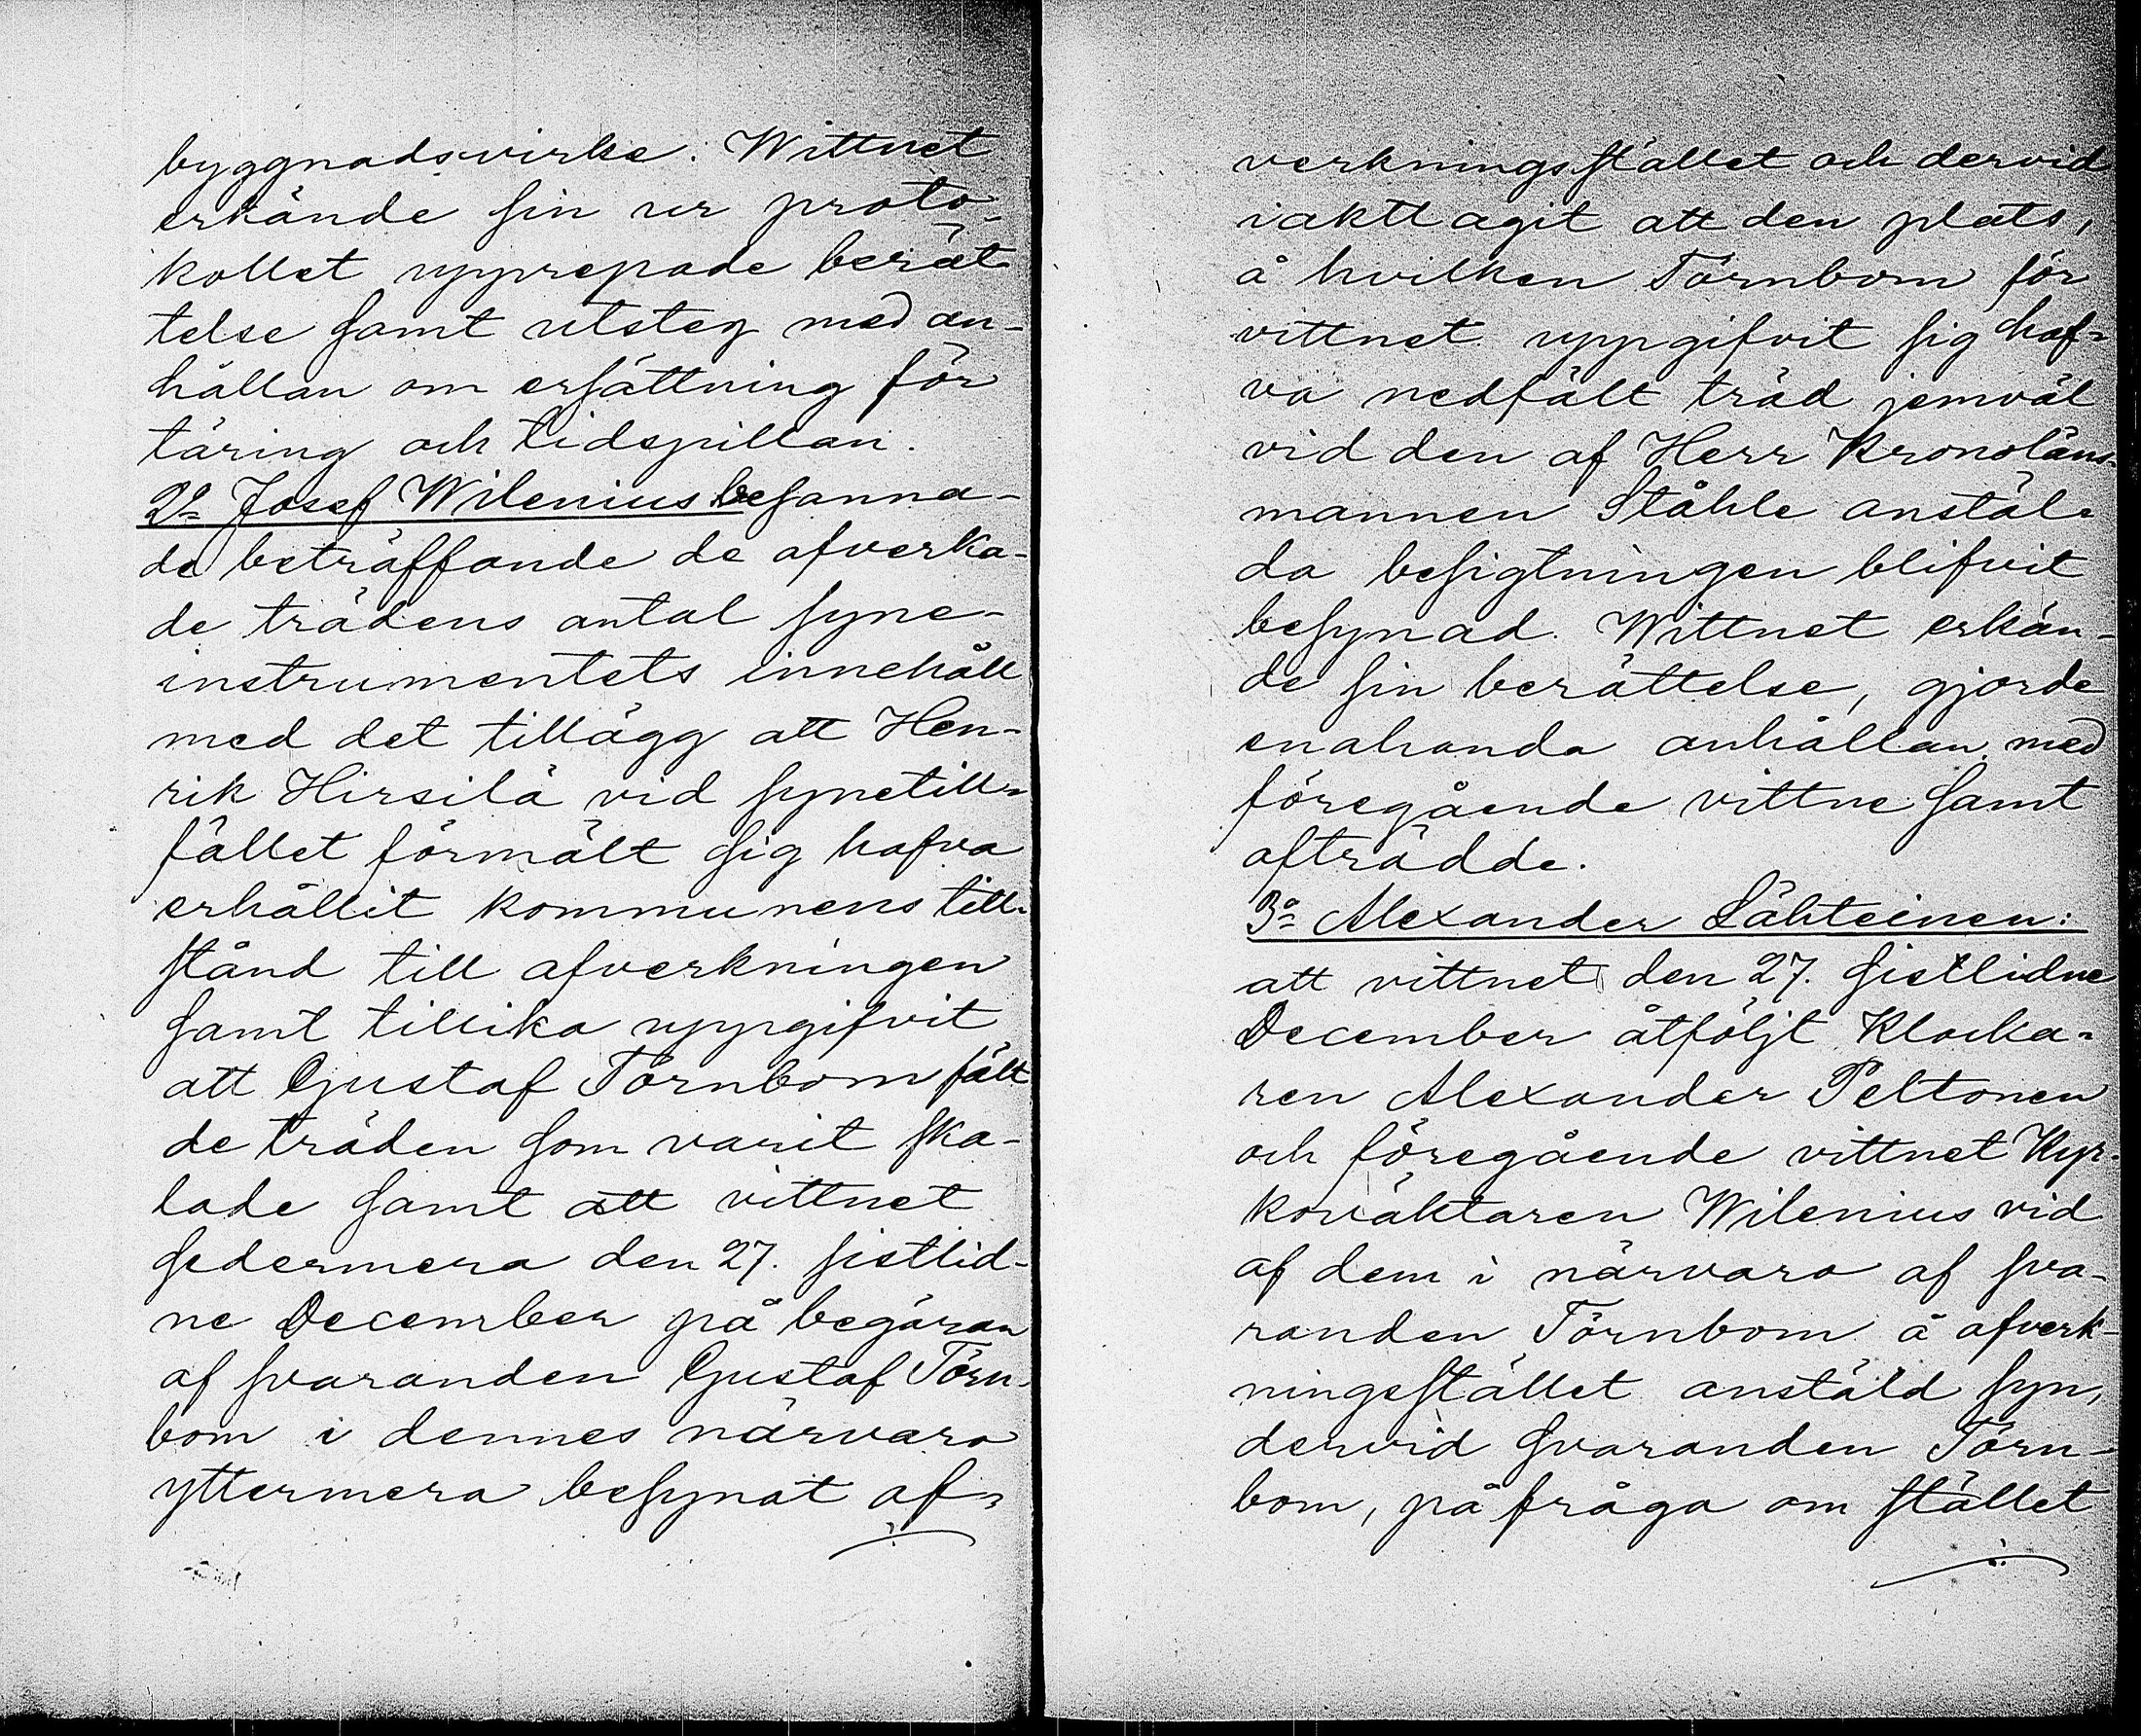 byggnadsvirke. Wittnet
erkände sin ur proto-
kollet upprepade berät-
telse samt utsteg med an-
hållan om ersättning för
täring och tidspillan.
2o Josef Wilenius besanna-
de beträffande de afverka-
de trädens antal syne-
instrumentets innehåll
med det tillägg att Hen-
rik Hirsilä vid synetill-
fället förmält sig hafva
erhållit kommunens till-
stånd till afverkningen
samt tillika uppgifvit
att Gustaf Törnbom fält
de träden som varit ska-
lade samt att vittnet
sedermera den 27. sistlid-
ne December på begäran
af svaranden Gustaf Törn-
bom i dennes närvaro
yttermera besynat af-
verkningsstället och dervid
iakttagit att den plats,
å hvilken Törnbom för
vittnet uppgifvit sig haf-
va nedfält träd jemväl
vid den af Herr Kronoläns-
mannen Ståhle anstäl-
da besigtningen blifvit
besynad. Wittnet erkän-
de sin berättelse, gjorde
enahanda anhållan med
föregående vittne samt
afträdde.
3o Alexander Lähteinen:
att vittnet den 27. sistlidne
December åtföljt Klocka-
ren Alexander Peltonen
och föregående vittnet Kyr-
koväktaren Wilenius vid
af dem i närvaro af sva-
randen Törnbom å afverk-
ningsstället anstäld syn,
dervid svaranden Törn-
bom, på fråga om stället